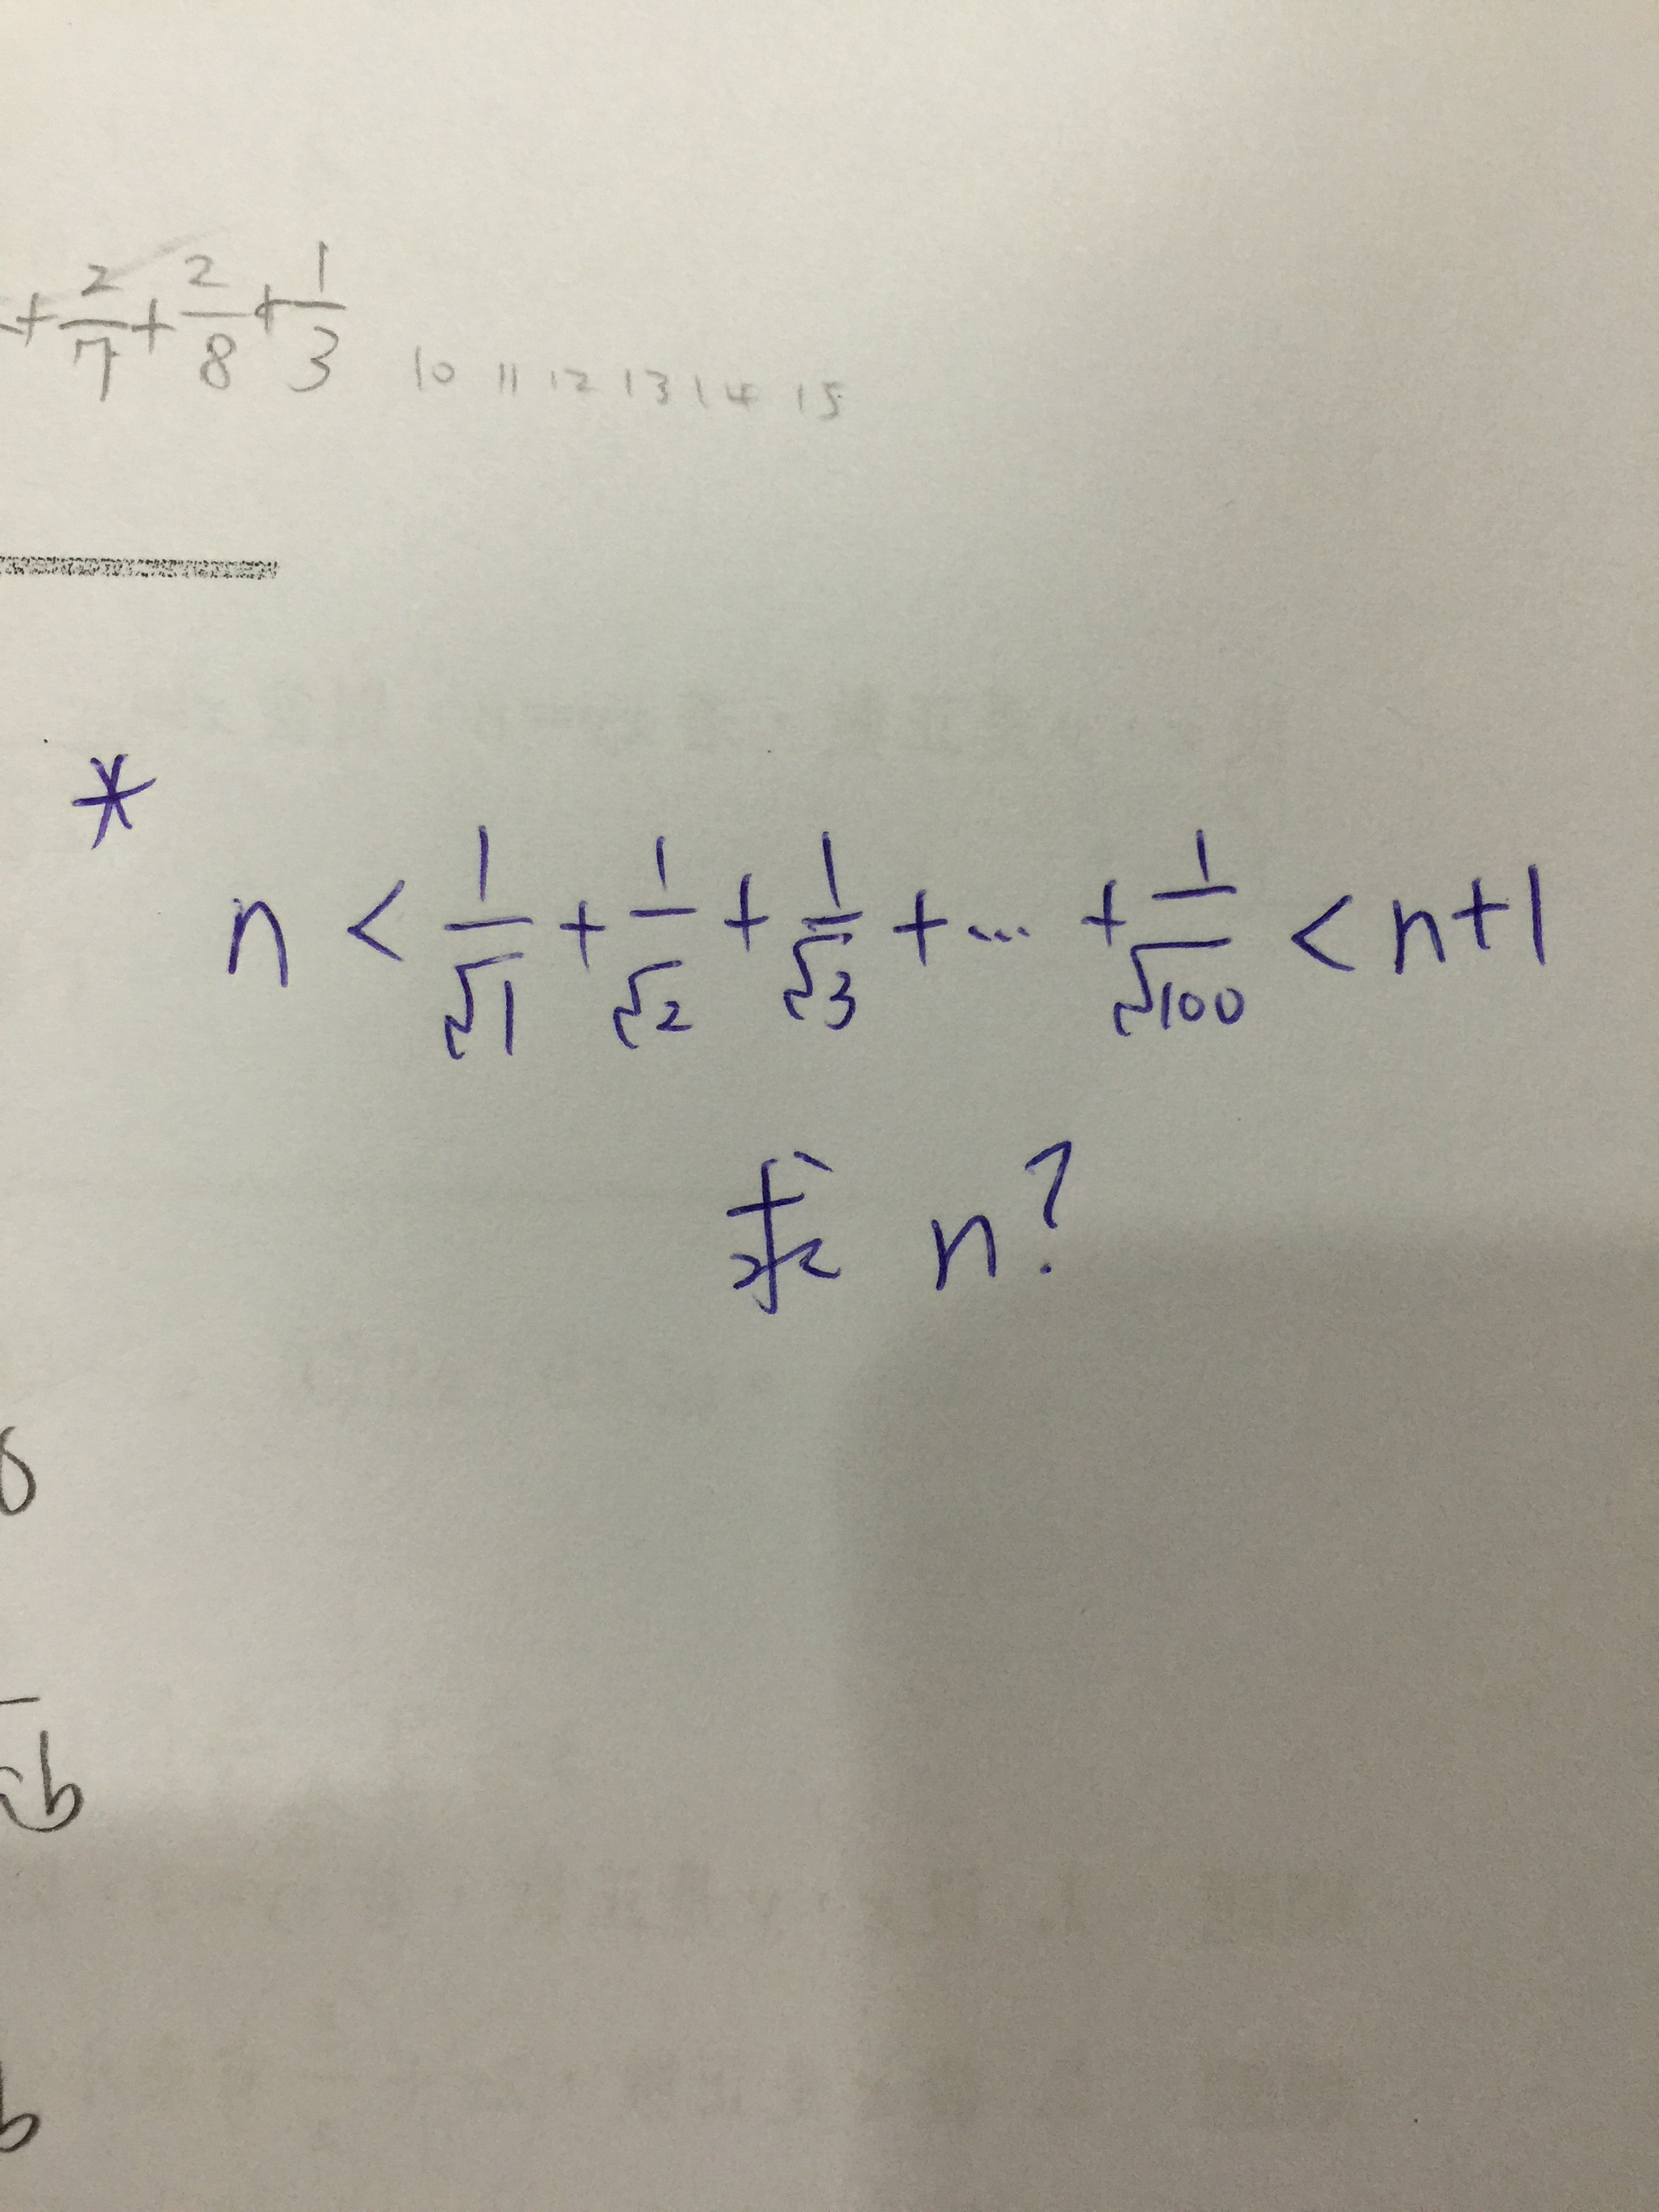 +2/7+2/8+1/3 10 11 12 13 14 15
*
n < 1/√1 + 1/√2 + 1/√3 + ... + 1/√100 < n+1
求 n?
b
b